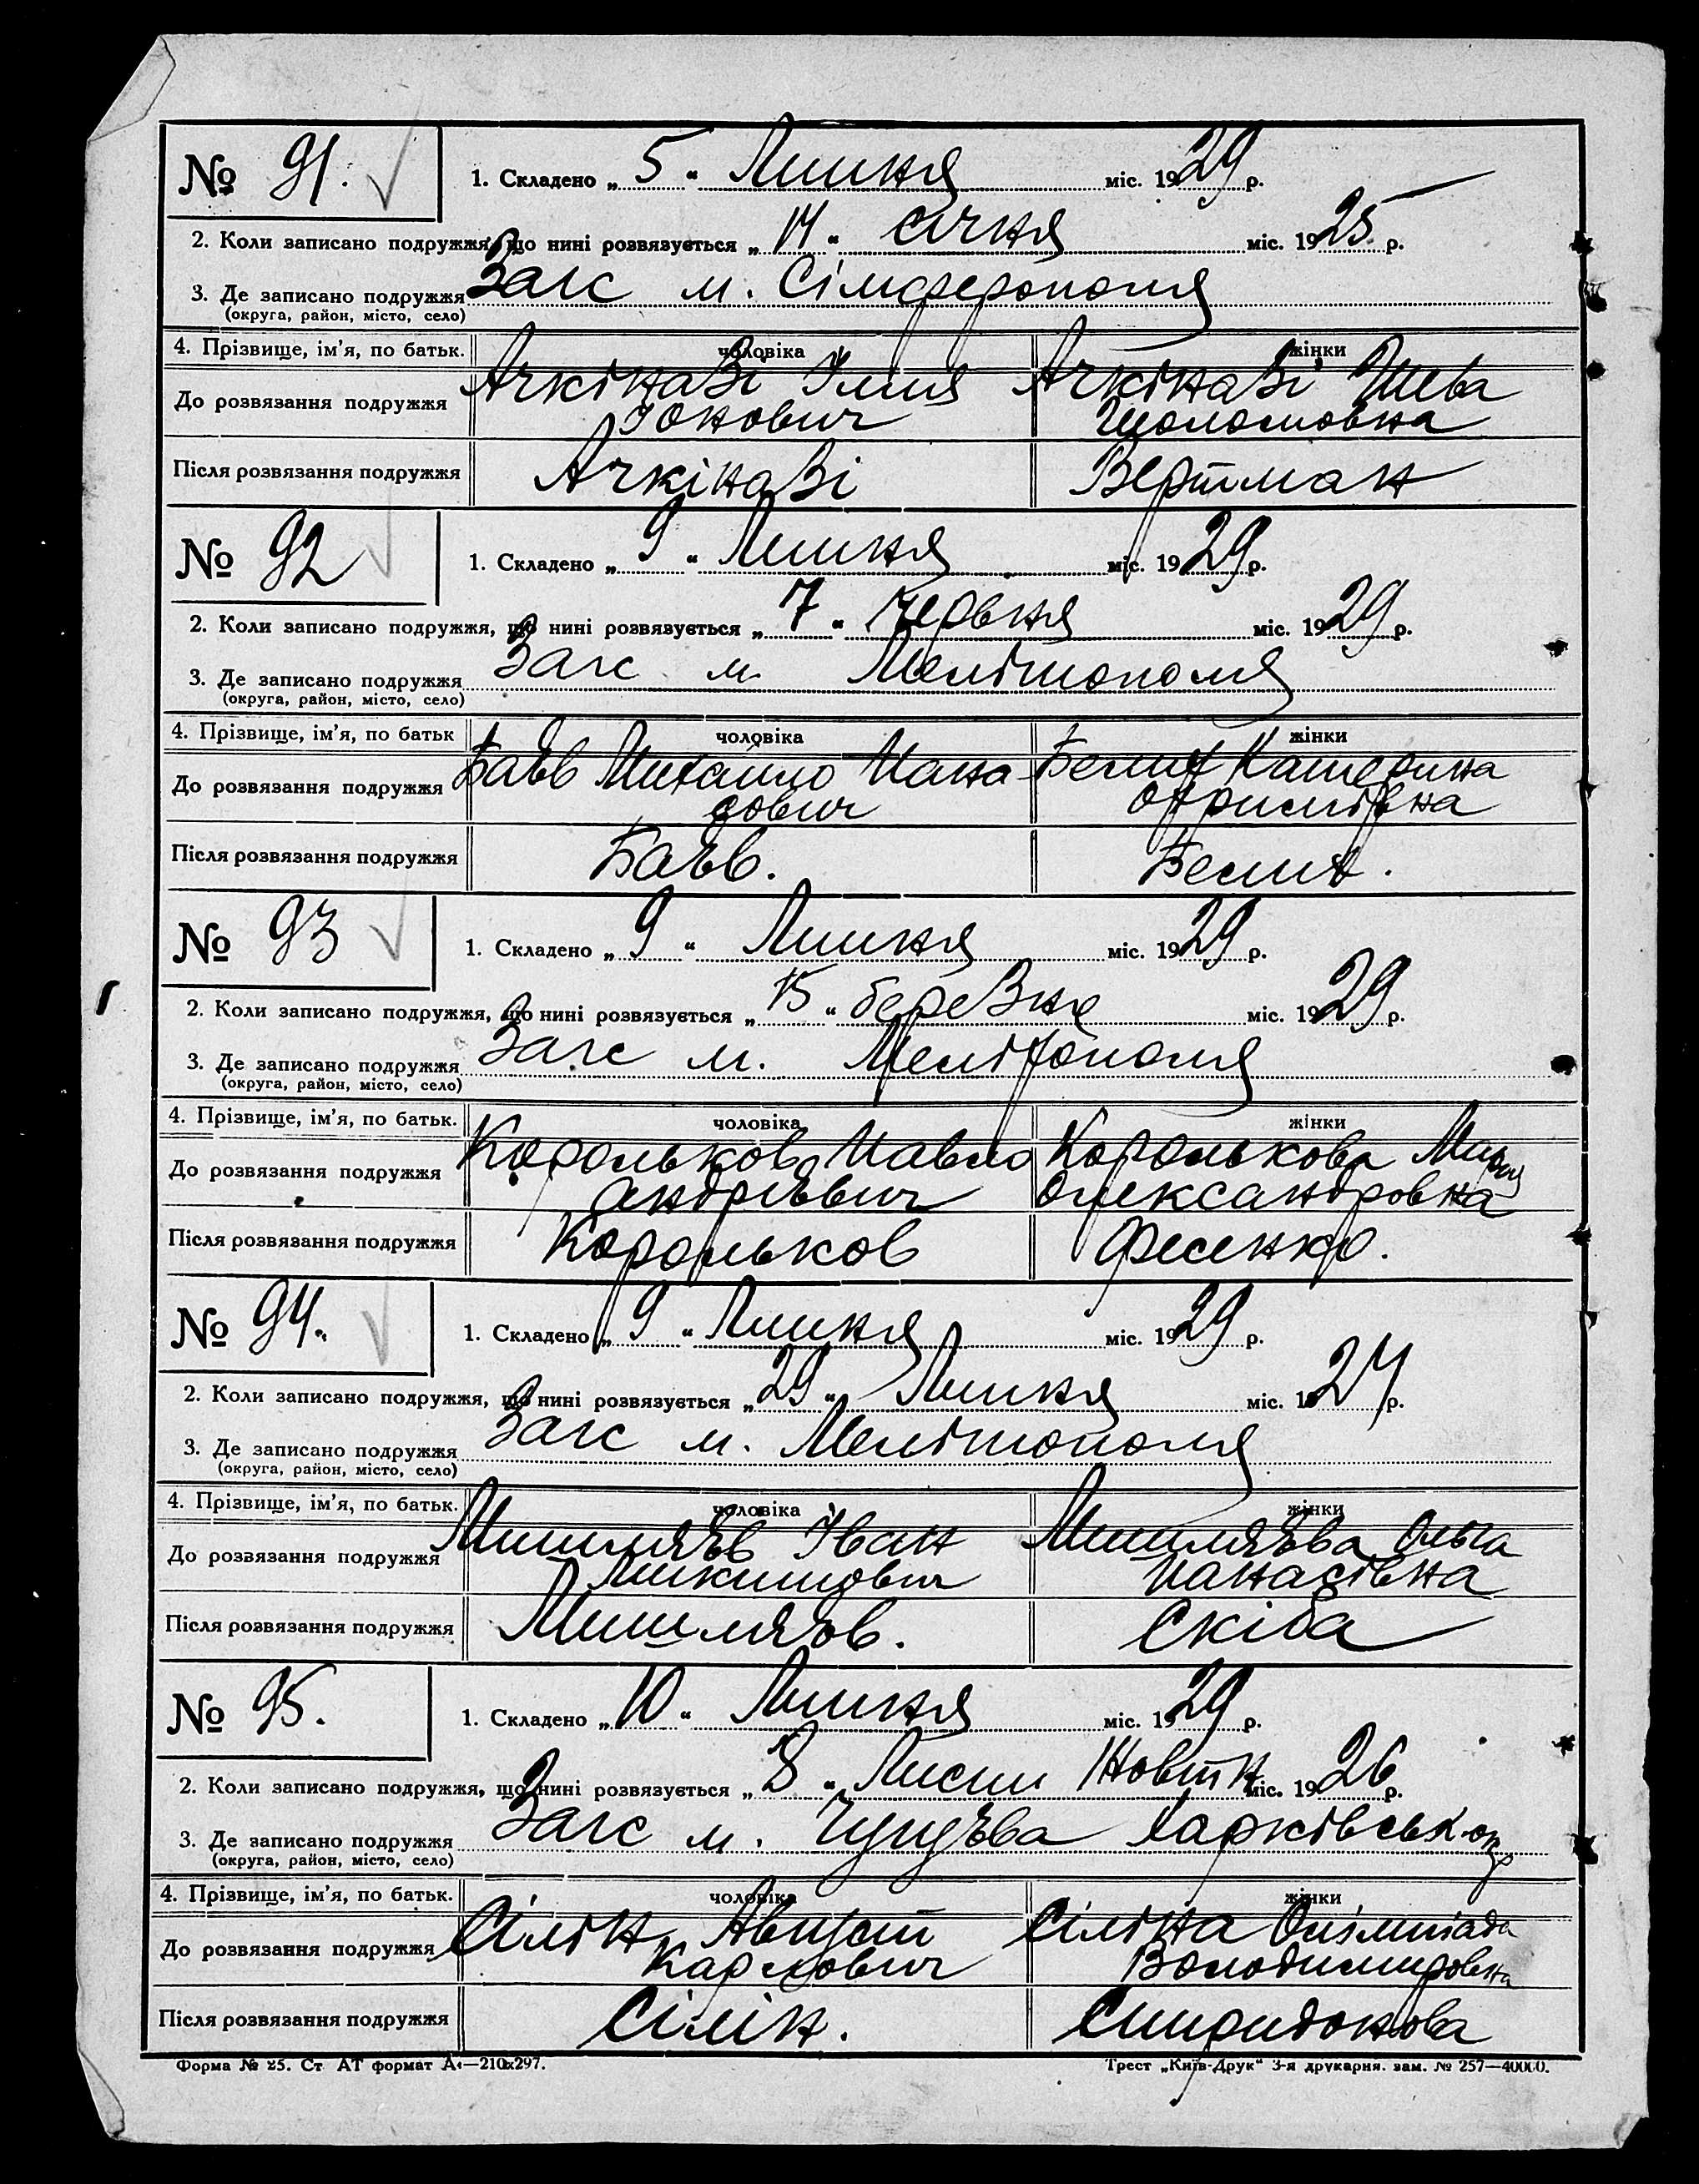 № 91. 1. Складено „5" Липня міс. 1929 р.
2. Коли записано подружжя, що нині розвязується „14" січня міс. 1925 р.
3. Де записано подружжя Загс м. Сімферополя
(округа, район, місто, село)
4. Прізвище, ім'я, по батьк. чоловіка жінки
До розвязання подружжя Ачкіназі Ілля Ачкіназі Шева
Юнович Шоломовна
Після розвязання подружжя Ачкіназі Вертман
№ 92 1. Складено „9" Липня міс. 1929 р.
2. Коли записано подружжя, що нині розвязується „7" червня міс. 1929 р.
3. Де записано подружжя Загс м. Мелітополя
(округа, район, місто, село)
4. Прізвище, ім'я, по батьк чоловіка жінки
До розвязання подружжя Михайло Пана Катерина
сович
Після розвязання подружжя
№ 93 1. Складено „9" Липня міс. 1929 р.
2. Коли записано подружжя, що нині розвязується „15" березня міс. 1929 р.
3. Де записано подружжя Загс м. Мелітополя
(округа, район, місто, село)
4. Прізвище, ім'я, по батьк. чоловіка жінки
До розвязання подружжя Корольков Павло Королькова Марія
Андрієвич Олександровна
Після розвязання подружжя Корольков Фесенко.
№ 94. 1. Складено „9" Липня міс. 1929 р.
2. Коли записано подружжя, що нині розвязується „29" Липня міс. 1924 р.
3. Де записано подружжя Загс м. Мелітополя
(округа, район, місто, село)
4. Прізвище, ім'я, по батьк. чоловіка жінки
До розвязання подружжя Мишляєв Іван Мишляєва Ольга
Микитович Панасівна
Після розвязання подружжя Мишляєв. Скіба
№ 95. 1. Складено „10" Липня міс. 1929 р.
2. Коли записано подружжя, що нині розвязується „8" Жовтн міс. 1926 р.
3. Де записано подружжя Загс м. Чугуєва Харківськ окр
(округа, район, місто, село)
4. Прізвище, ім'я, по батьк. чоловіка жінки
До розвязання подружжя Сілін Август Сіліна Олімпіада
Карлович Володимировна
Після розвязання подружжя Сілін. Спиридонова
Форма № 25. Ст АТ формат А4—210x297. Трест „Київ-Друк" 3-я друкарня. зам. № 257—40000.